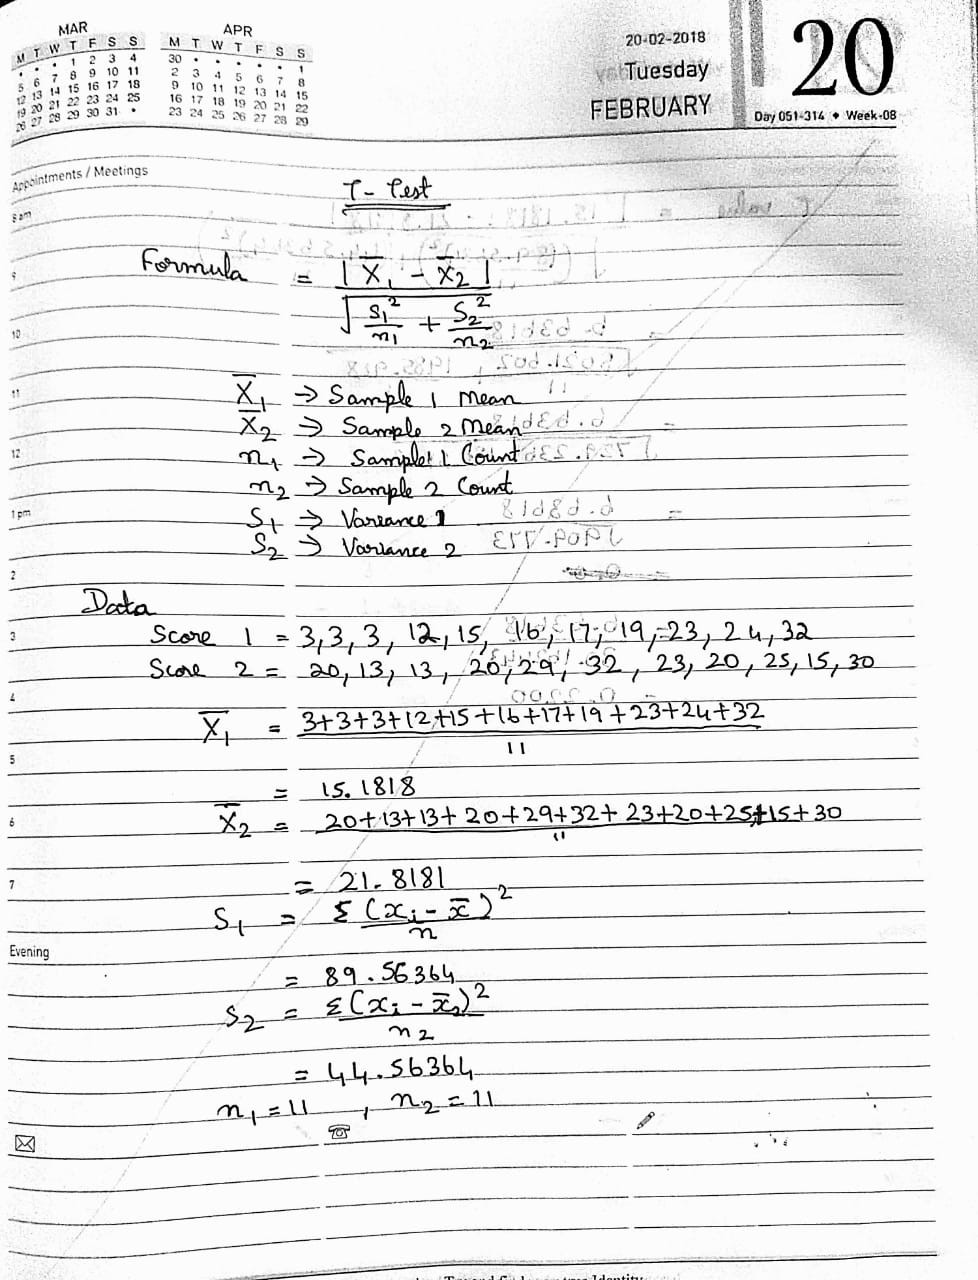 MAR
M T W T F S S
• • • 1 2 3 4
5 6 7 8 9 10 11
12 13 14 15 16 17 18
19 20 21 22 23 24 25
26 27 28 29 30 31 •
APR
M T W T F S S
30 • • • • • 1
2 3 4 5 6 7 8
9 10 11 12 13 14 15
16 17 18 19 20 21 22
23 24 25 26 27 28 29
20-02-2018
Tuesday
FEBRUARY
20
Day 051-314 ♦ Week-08
Appointments / Meetings
T-Test
8 am
Formula = | X̅₁ - X̅₂ |
9
√ S₁²/n₁ + S₂²/n₂
10
11
X̅₁ → Sample 1 Mean
X̅₂ → Sample 2 Mean
12
n₁ → Sample 1 Count
n₂ → Sample 2 Count
1 pm
S₁ → Variance 1
S₂ → Variance 2
2
Data
3
Score 1 = 3, 3, 3, 12, 15, 16, 17, 19, 23, 24, 32
Score 2 = 20, 13, 13, 20, 29, 32, 23, 20, 25, 15, 30
4
X̅₁ = 3+3+3+12+15+16+17+19+23+24+32
11
5
= 15.1818
6
X̅₂ = 20+13+13+20+29+32+23+20+25+15+30
11
7
= 21.8181
S₁ = Σ(xᵢ - x̅)²
n
Evening
= 89.56364
S₂ = Σ(xᵢ - x̅₂)²
n₂
= 44.56364
n₁ = 11 , n₂ = 11